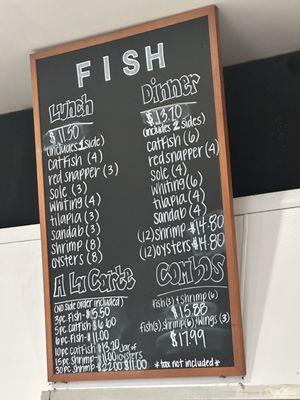 FISH
Lunch
$11.50
(includes 1 side)
catfish (4)
red snapper (3)
sole (3)
whiting (4)
tilapia (3)
sandab (3)
shrimp (8)
oysters (8)
Dinner
$13.70
(includes 2 sides)
catfish (6)
red snapper (4)
sole (4)
whiting (6)
tilapia (4)
sandab (4)
(12) shrimp - $14.80
(12) oysters - $14.80
A La Carte
(NO side order included)
3pc Fish - $5.50
5pc catfish $6.60
6pc Fish - $11.00
10pc catfish $13.20
15pc shrimp - $11.00
30pc shrimp - $22.00
jar of
oysters
$11.00
Combos
Fish(3) + shrimp (6)
$15.88
Fish(3), shrimp(6), Wings (3)
$17.99
*tax not included*